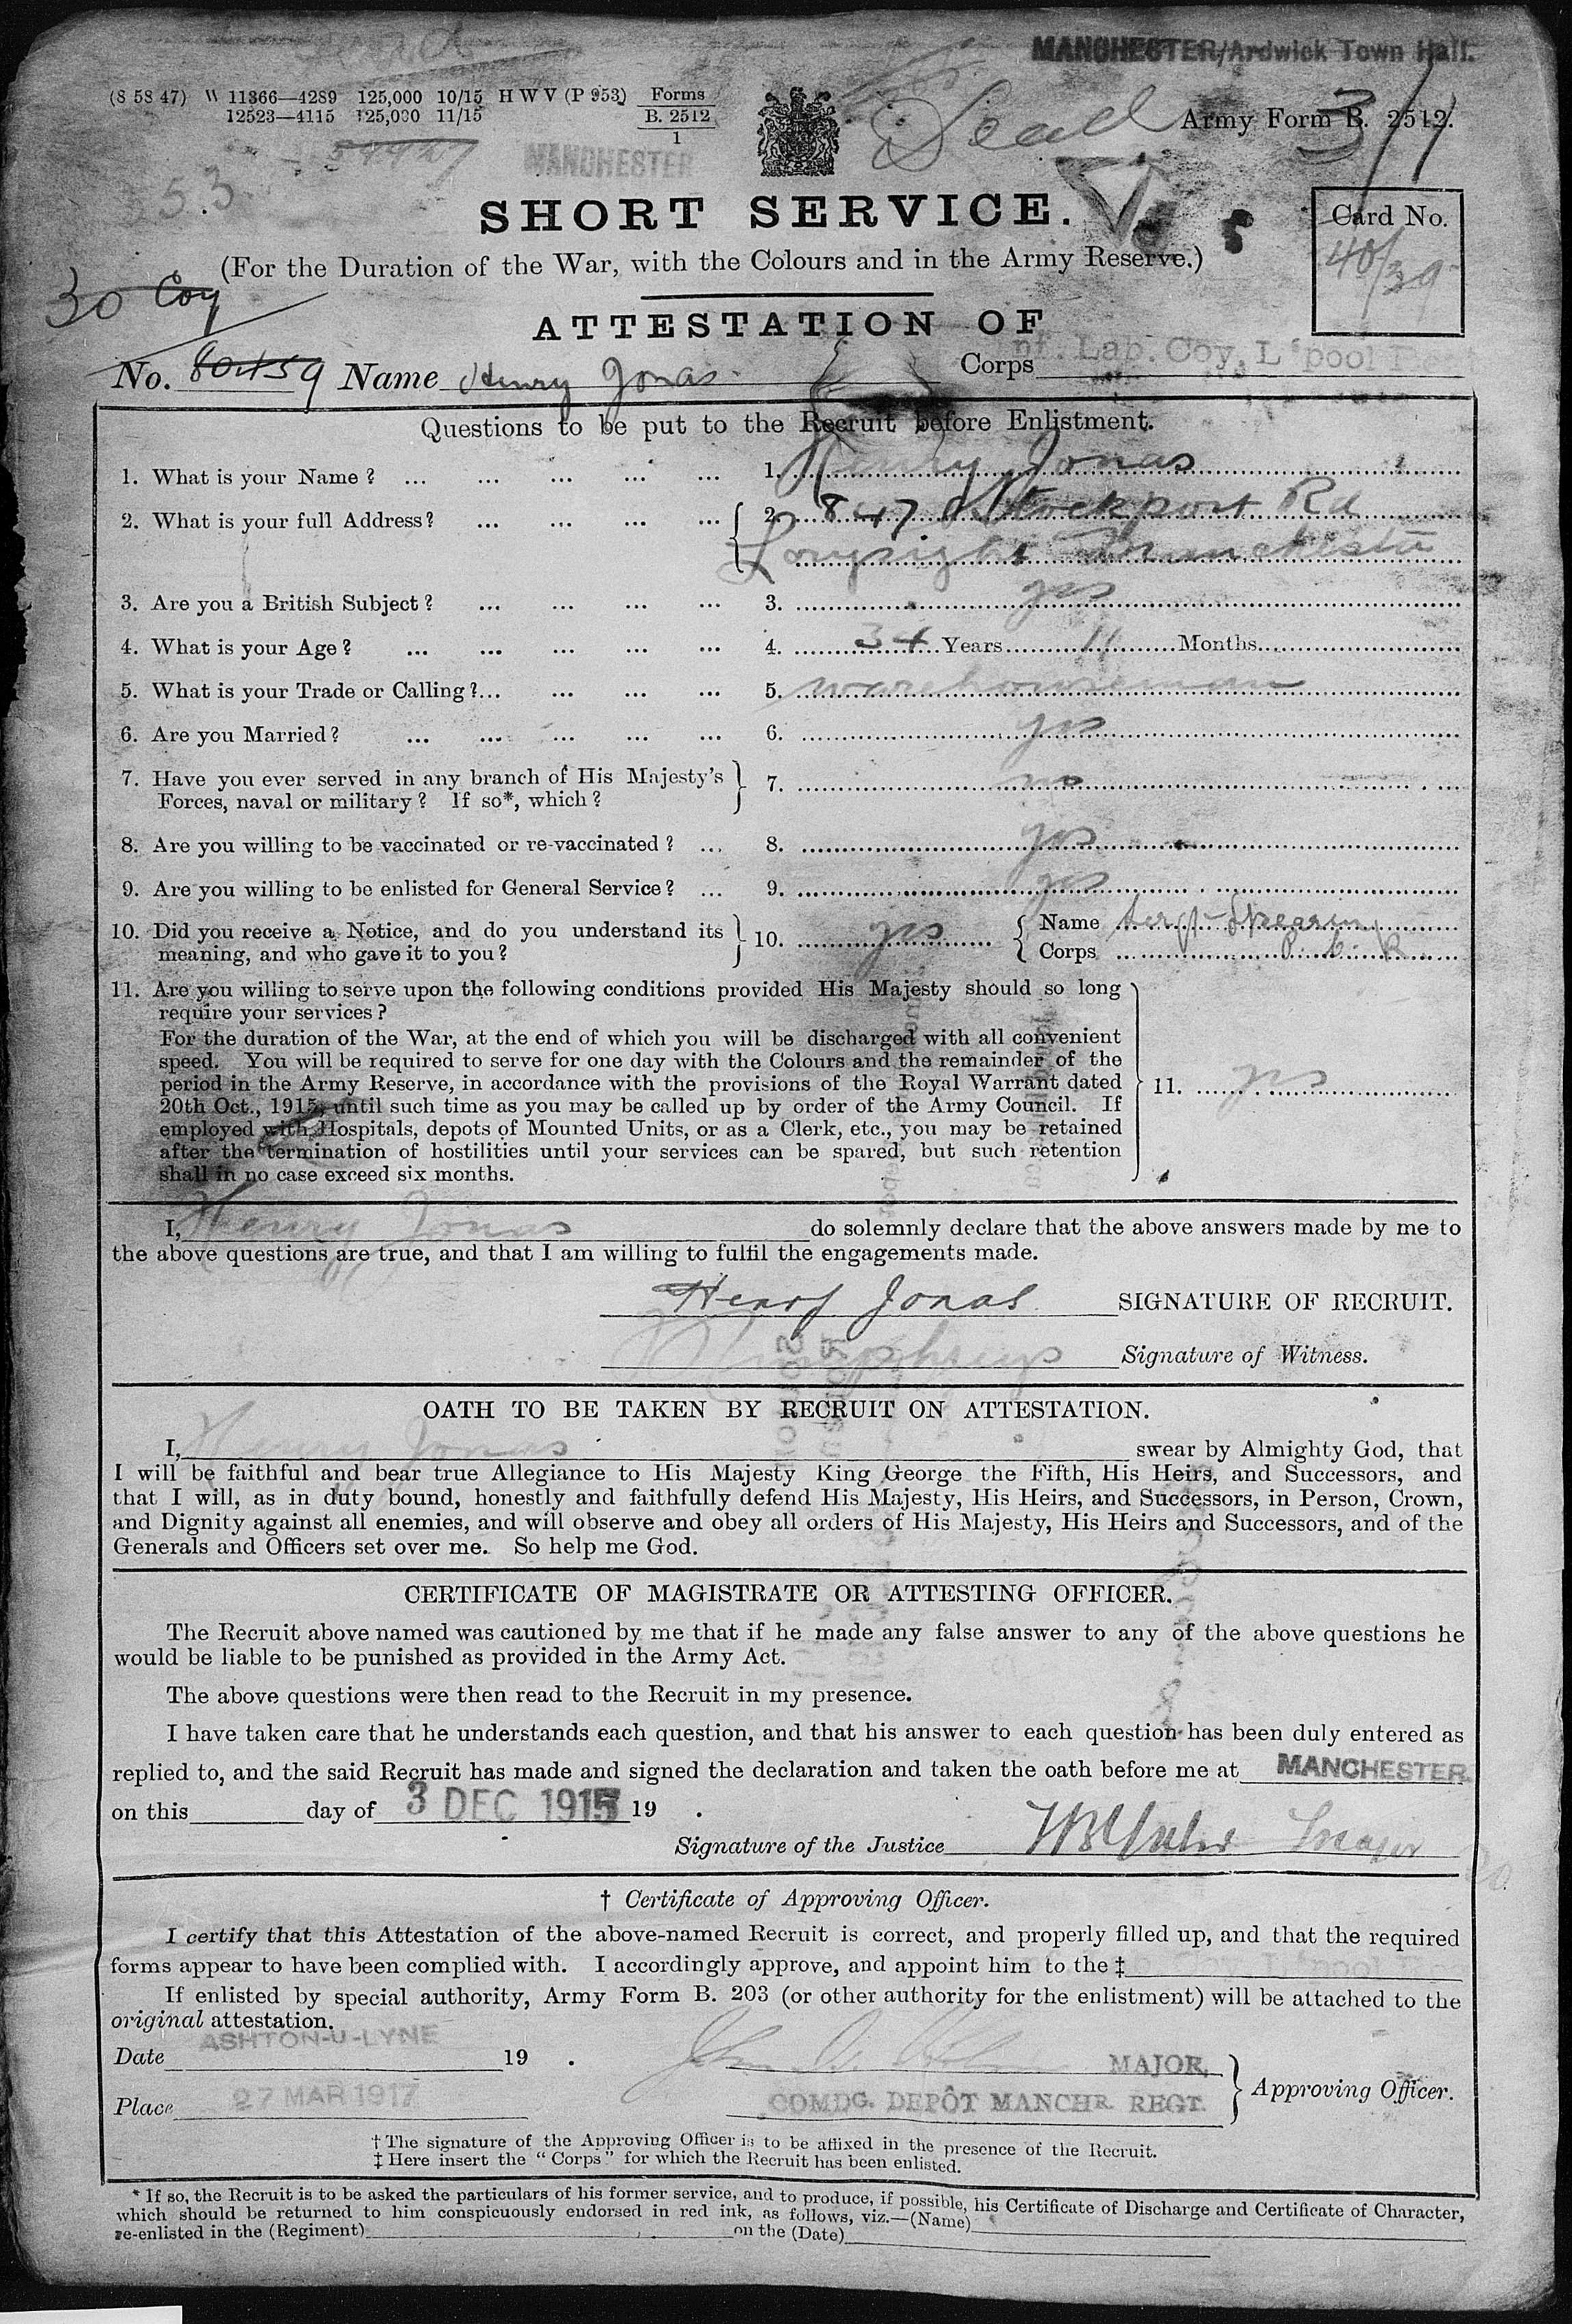 MANCHESTER/Ardwick Town Hall.
(8 58 47) W 11366—4289 125,000 10/15 H W V (P 953) Forms
12523—4115 125,000 11/15 B. 2512
1
Army Form B. 2512.
MANCHESTER
53
SHORT SERVICE.
Card No.
40/39
(For the Duration of the War, with the Colours and in the Army Reserve.)
30 Coy
ATTESTATION OF
No. 80459 Name Henry Jonas. Corps nf. Lab. Coy, L'pool
Questions to be put to the Recruit before Enlistment.
1. What is your Name? ... ... ... ... ... 1. Henry Jonas
2. What is your full Address? ... ... ... ... 2. 847 Stockport Rd
Longsight Manchester
3. Are you a British Subject? ... ... ... ... 3. yes
4. What is your Age? ... ... ... ... ... 4. 34 Years 11 Months
5. What is your Trade or Calling?... ... ... ... 5. warehouseman
6. Are you Married? ... ... ... ... ... 6. yes
7. Have you ever served in any branch of His Majesty's 7. no
Forces, naval or military? If so*, which?
8. Are you willing to be vaccinated or re-vaccinated? ... 8. yes
9. Are you willing to be enlisted for General Service? ... 9. yes
10. Did you receive a Notice, and do you understand its 10. yes Name
meaning, and who gave it to you? Corps
11. Are you willing to serve upon the following conditions provided His Majesty should so long
require your services?
For the duration of the War, at the end of which you will be discharged with all convenient
speed. You will be required to serve for one day with the Colours and the remainder of the
period in the Army Reserve, in accordance with the provisions of the Royal Warrant dated 11. yes
20th Oct., 1915, until such time as you may be called up by order of the Army Council. If
employed with Hospitals, depots of Mounted Units, or as a Clerk, etc., you may be retained
after the termination of hostilities until your services can be spared, but such retention
shall in no case exceed six months.
I, Henry Jonas do solemnly declare that the above answers made by me to
the above questions are true, and that I am willing to fulfil the engagements made.
Henry Jonas SIGNATURE OF RECRUIT.
Humphreys Signature of Witness.
OATH TO BE TAKEN BY RECRUIT ON ATTESTATION.
I, Henry Jonas swear by Almighty God, that
I will be faithful and bear true Allegiance to His Majesty King George the Fifth, His Heirs, and Successors, and
that I will, as in duty bound, honestly and faithfully defend His Majesty, His Heirs, and Successors, in Person, Crown,
and Dignity against all enemies, and will observe and obey all orders of His Majesty, His Heirs and Successors, and of the
Generals and Officers set over me. So help me God.
CERTIFICATE OF MAGISTRATE OR ATTESTING OFFICER.
The Recruit above named was cautioned by me that if he made any false answer to any of the above questions he
would be liable to be punished as provided in the Army Act.
The above questions were then read to the Recruit in my presence.
I have taken care that he understands each question, and that his answer to each question has been duly entered as
replied to, and the said Recruit has made and signed the declaration and taken the oath before me at MANCHESTER
on this day of 3 DEC 1915 19 .
Signature of the Justice
† Certificate of Approving Officer.
I certify that this Attestation of the above-named Recruit is correct, and properly filled up, and that the required
forms appear to have been complied with. I accordingly approve, and appoint him to the ‡
If enlisted by special authority, Army Form B. 203 (or other authority for the enlistment) will be attached to the
original attestation.
ASHTON-U-LYNE
Date 19 . MAJOR,
Place 27 MAR 1917 COMDG. DEPÔT MANCHR. REGT. Approving Officer.
† The signature of the Approving Officer is to be affixed in the presence of the Recruit.
‡ Here insert the "Corps" for which the Recruit has been enlisted.
* If so, the Recruit is to be asked the particulars of his former service, and to produce, if possible, his Certificate of Discharge and Certificate of Character,
which should be returned to him conspicuously endorsed in red ink, as follows, viz.—(Name)
re-enlisted in the (Regiment) on the (Date)